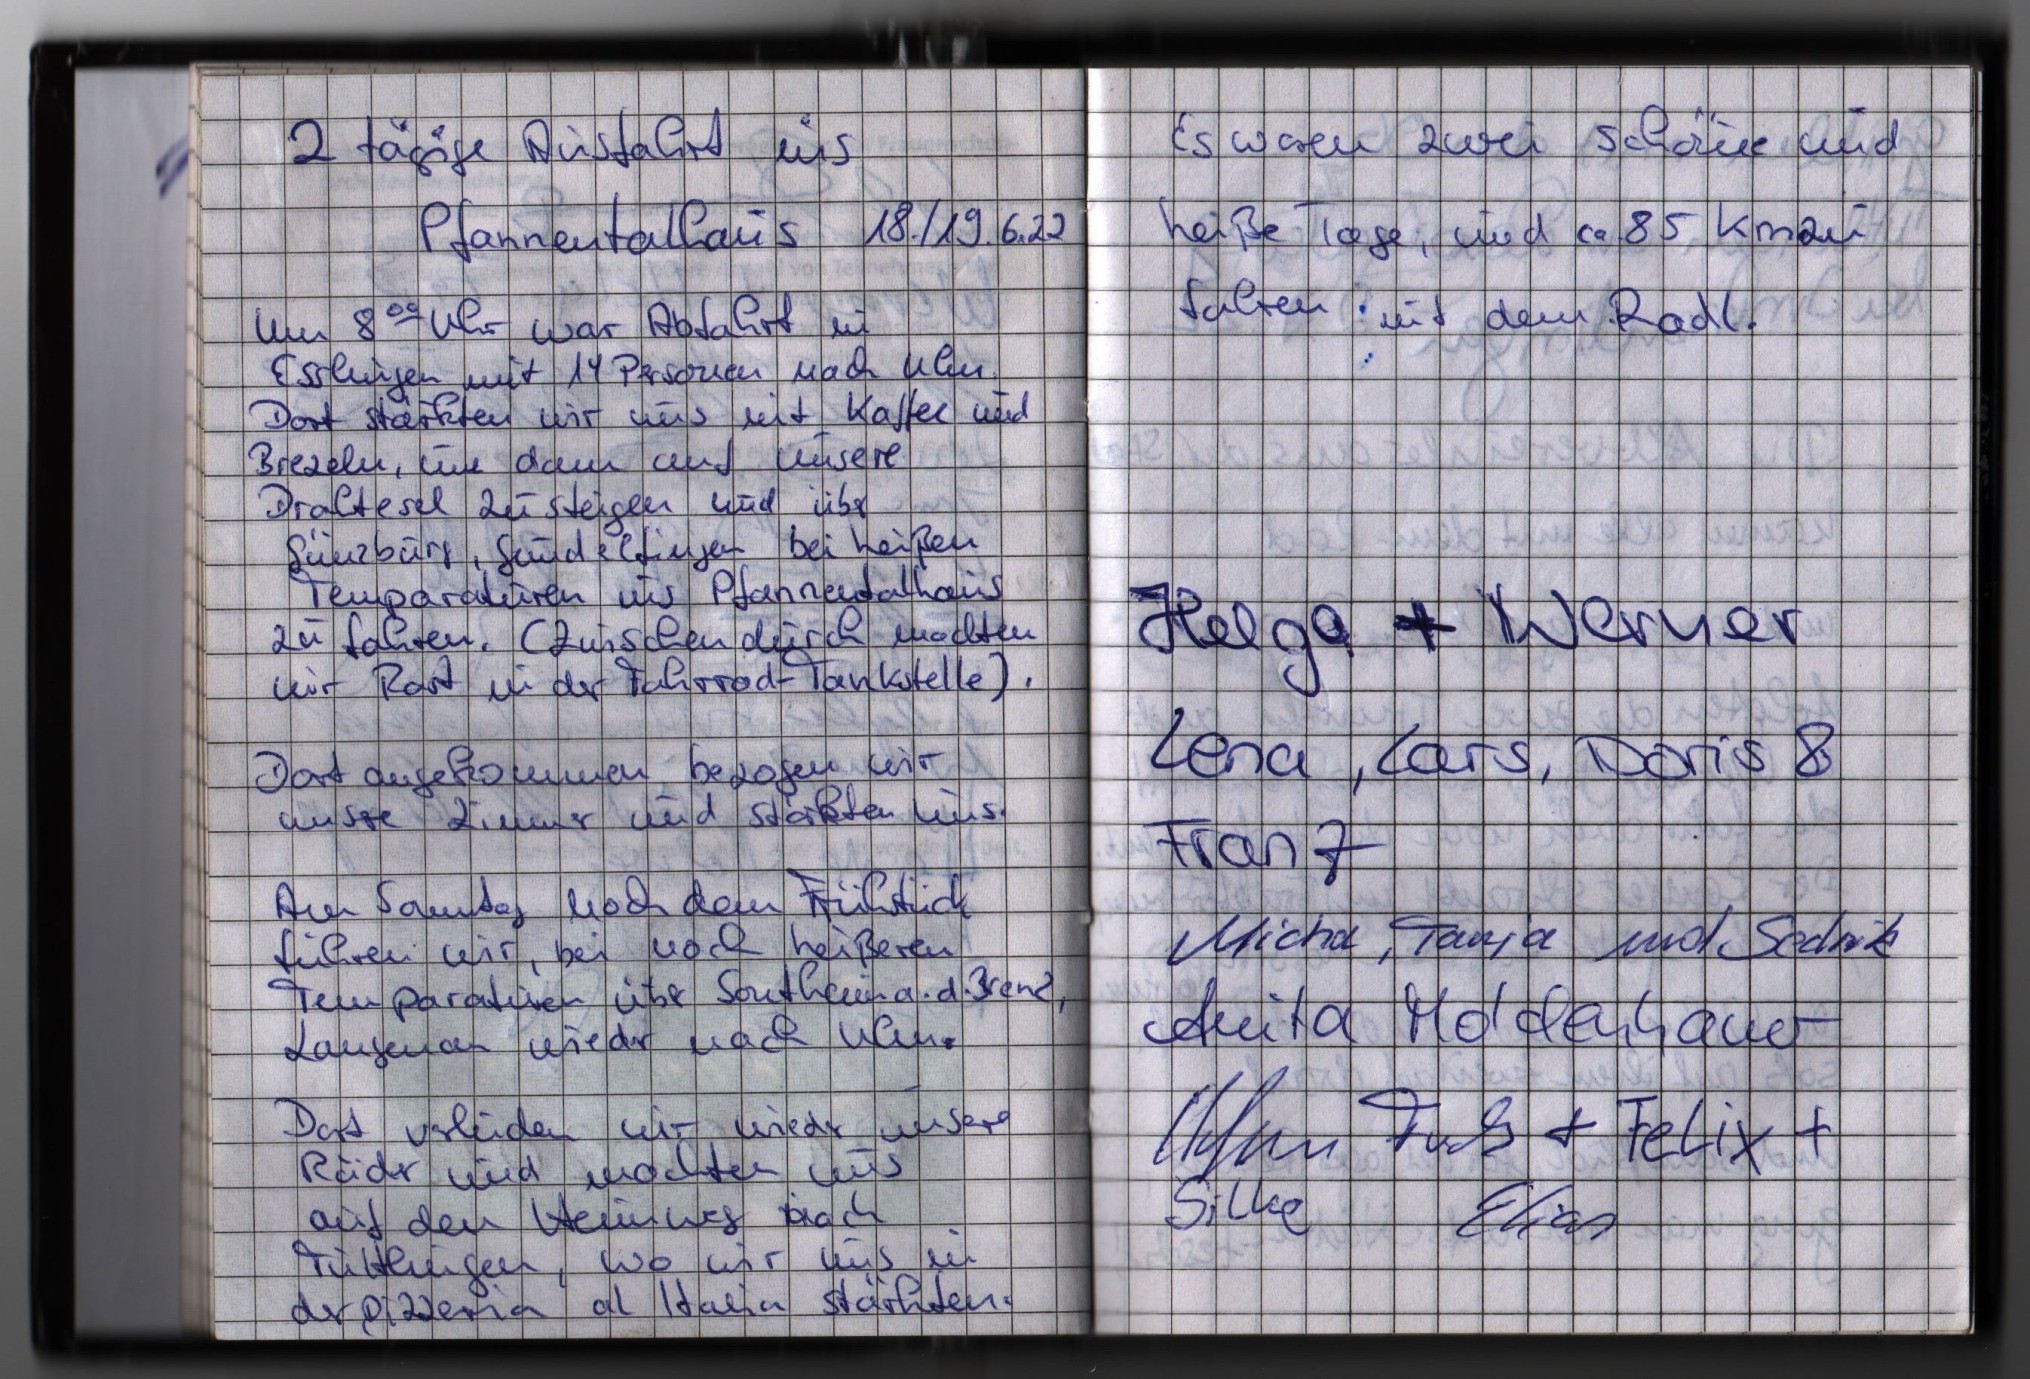 2 tägige Ausfahrt ins
Pfannentalhaus 18./19.6.22
Um 8°° Uhr war Abfahrt in
Esslingen mit 14 Personen nach Ulm.
Dort stärkten wir uns mit Kaffee und
Brezeln, um dann auf unsere
Drahtesel zu steigen und über
Günzburg, Gundelfingen bei heißen
Temparaturen ins Pfannentalhaus
zu fahren. (Zwischendurch machten
wir Rast in der Fahrrad-Tankstelle).
Dort angekommen bezogen wir
unsre Zimmer und stärkten uns.
Am Samstag nach dem Frühstück
fuhren wir, bei noch heißeren
Temparaturen über Sontheim a.d.Brenz,
Langenau wieder nach Ulm.
Dort verluden wir wieder unsere
Räder und machten uns
auf den Heimweg nach
Tüttlingen, wo wir uns in
der Pizzeria al Italia stärkten.
Es waren zwei schöne und
heiße Tage, und ca 85 Km zu
fahren mit dem Radl.
Helga + Werner
Lena, Lars, Doris &
Franz
Micha, Tanja und
Anita Moldenhauer
Fuchs + Felix +
Silke Elias